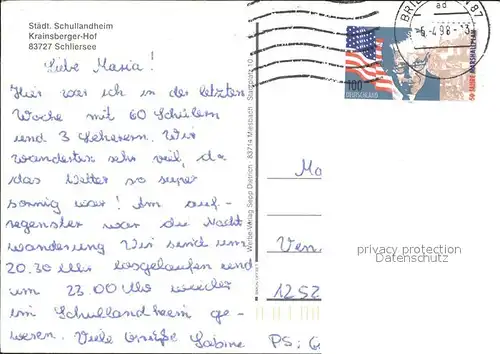 Städt. Schullandheim
Krainsberger-Hof
83727 Schliersee
Liebe Maria!
Hier war ich in der letzten
Woche mit 60 Schülern
und 3 Lehrern. Wir
wanderten sehr viel, da
das Wetter so super
sonnig war! Am auf-
regenster war die Nacht
wanderung Wir sind um
20.30 Uhr losgelaufen und
um 23.00 Uhr wieder
im Schullandheim ge-
wesen. Viele Grüße Sabine
PS: G
Werbe-Verlag Sepp Dietrich 83714 Miesbach
BRI
87
ad
-6.-4.98-
100
DEUTSCHLAND
50 JAHRE MARSHALLPLAN
Mo
Ven
1252
privacy protection
Datenschutz